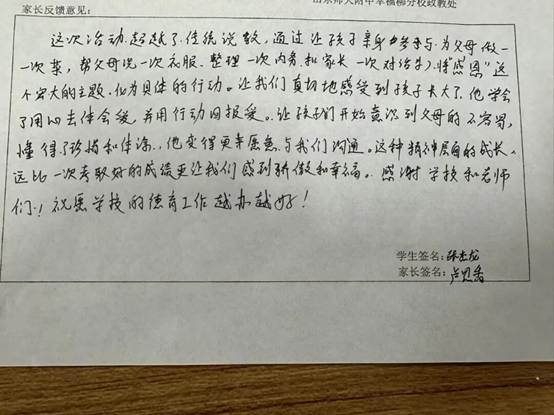 家长反馈意见：
山东师大附中幸福柳分校政教处
这次活动超越了传统说教，通过让孩子亲身参与为父母做一
一次菜，帮父母洗一次衣服、整理一次内务和家长一次对话等，将“感恩”这
个宏大的主题，化为具体的行动。让我们真切地感受到孩子长大了，他学会
了用心去体会爱，并用行动回报爱。让孩子们开始意识到父母的不容易，
懂得了珍惜和体谅，他变得更幸愿意与我们沟通。这种精神层面的成长，
远比一次考取好的成绩更让我们感到骄傲和幸福。感谢学校和老师
们！祝愿学校的德育工作越办越好！
学生签名：
家长签名：